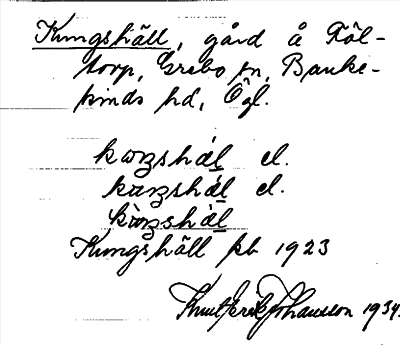 Kungshäll, gård å Föl-
torp, Grebo sn, Banke-
kinds hd, Ögl.
kɷŋshál el.
kuŋshál el.
kùŋshàl
Kungshäll kb 1923
Knut Erik Johansson 1934.